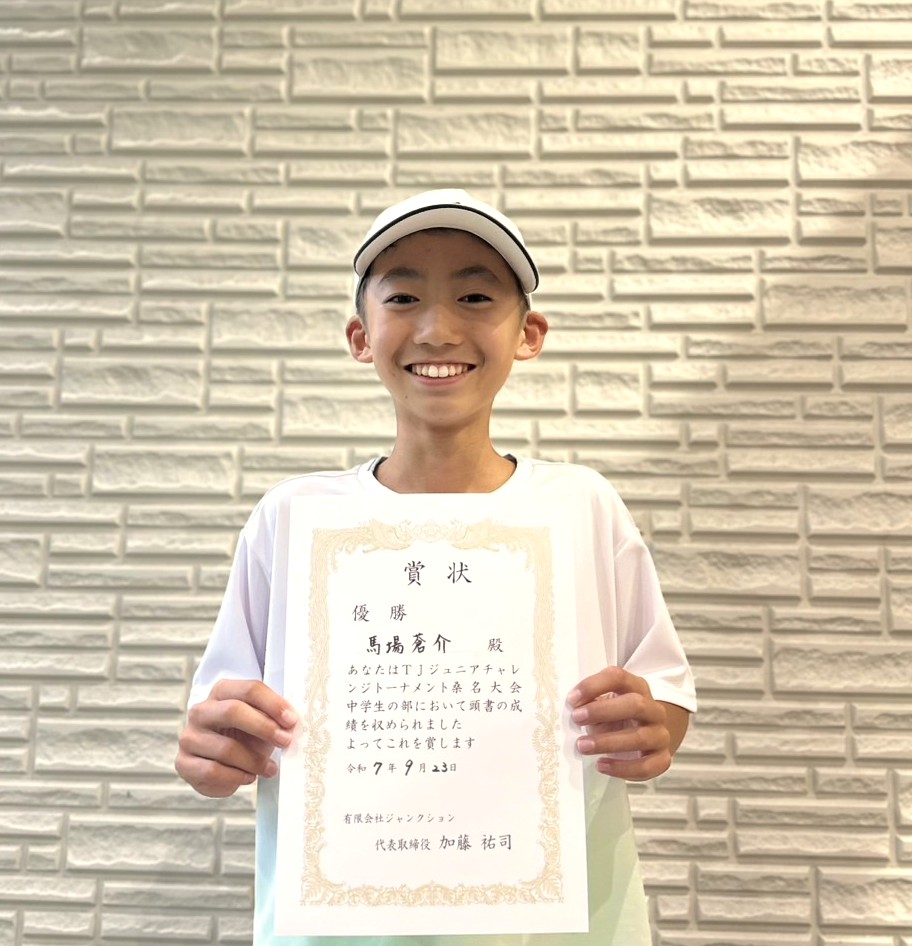 賞状
優勝
馬場蒼介 殿
あなたはTJジュニアチャレ
ンジトーナメント桑名大会
中学生の部において頭書の成
績を収められました
よってこれを賞します
令和7年9月23日
有限会社ジャンクション
代表取締役 加藤 祐司